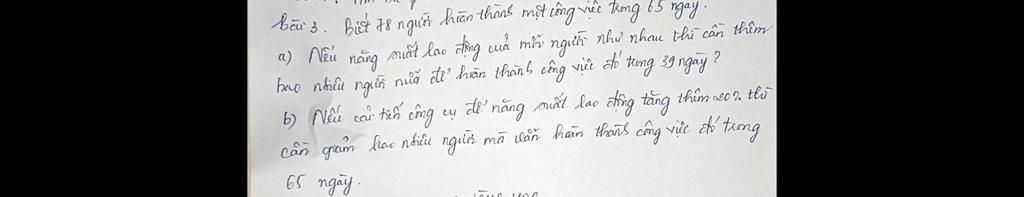 Bài 3. Biết 78 người hoàn thành một công việc trong 65 ngày.
a) Nếu năng suất lao động của mỗi người như nhau thì cần thêm
bao nhiêu người nữa để hoàn thành công việc đó trong 39 ngày?
b) Nếu cải tiến công cụ để năng suất lao động tăng thêm 20% thì
cần giảm bao nhiêu người mà vẫn hoàn thành công việc đó trong
65 ngày.